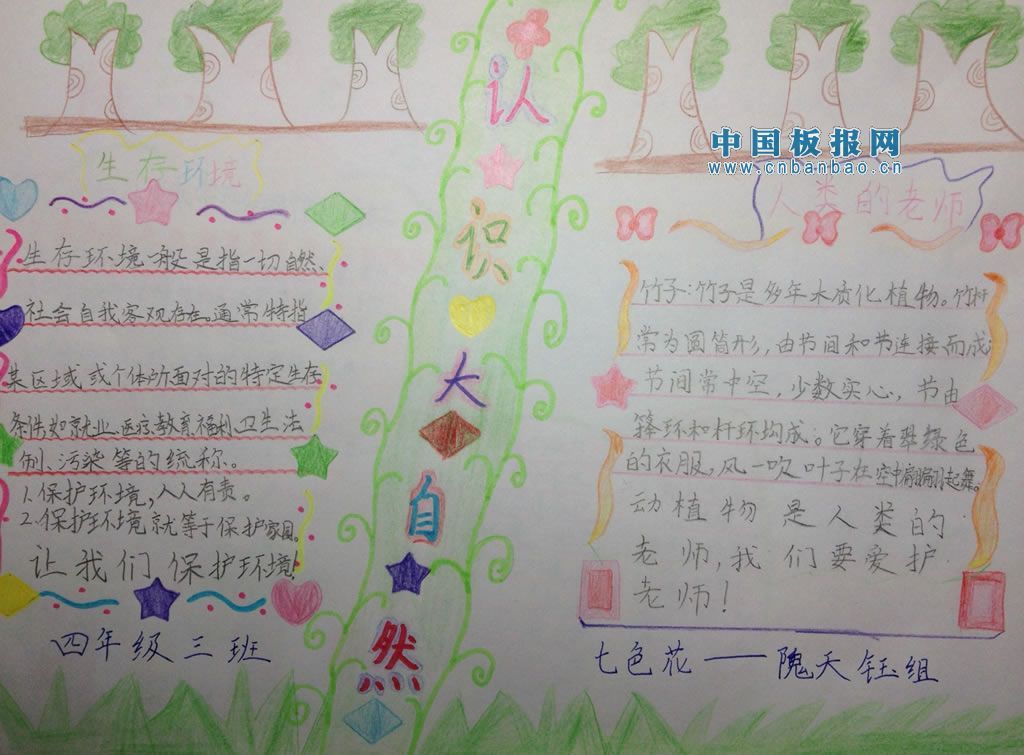 认识大自然
生存环境
生存环境一般是指一切自然、
社会自我客观存在。通常特指
某区域或个体所面对的特定生存
条件如就业、医疗、教育、福利、卫生、法
制、污染等的统称。
1.保护环境,人人有责。
2.保护环境就等于保护家园。
让我们保护环境!
四年级三班
中国板报网
www.cnbanbao.cn
人类的老师
竹子:竹子是多年木质化植物。竹杆
常为圆筒形,由节间和节连接而成
节间常中空,少数实心,节由
箨环和杆环构成。它穿着翠绿色
的衣服,风一吹叶子在空中翩翩起舞。
动植物是人类的
老师,我们要爱护
老师!
七色花——隗天钰组